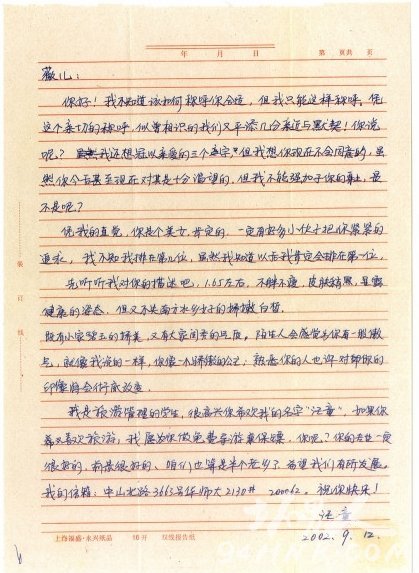 年 月 日 第 页共 页
薇儿：
你好！我不知道该如何称呼你合适，但我只能这样称呼。凭
这个亲切的称呼，似曾相识的我们又平添几分亲近与默契！你说
呢？我还想冠以亲爱的三个字，但我想你现在不会同意的，虽
然你今后甚至现在对其是十分渴望的，但我不能强加于你的身上，是
不是呢？
凭我的直觉，你是个美女，肯定的，一定有好多小伙子把你紧紧的
追求，我不知我排在第几位，虽然我知道以后我肯定会排在第一位，
先听听我对你的描述吧，1.65左右，不胖不瘦，皮肤稍黑，显露
健康的姿态，但又不失南方水乡女子的 白皙。
既有小家碧玉的 美，又有大家闺秀的气质。陌生人会感觉与你有一股傲
气，就像我说的一样，你像一个骄傲的公主；熟悉你的人也许对即取的
印象将会彻底改变。
我是旅游管理的学生，很高兴你喜欢我的名字“汪童”，如果你
喜欢旅游，我愿为你做免费导游兼保镖，你呢？你的专业一定
很好的，前景很好的，咱们也算是半个老乡了，希望我们有所发展。
我的信箱：中山北路3663号华师大2130# 200062。祝你快乐！
汪童
2002.9.12.
装 订 线
上海福盛·永兴纸品 16开 双线报告纸